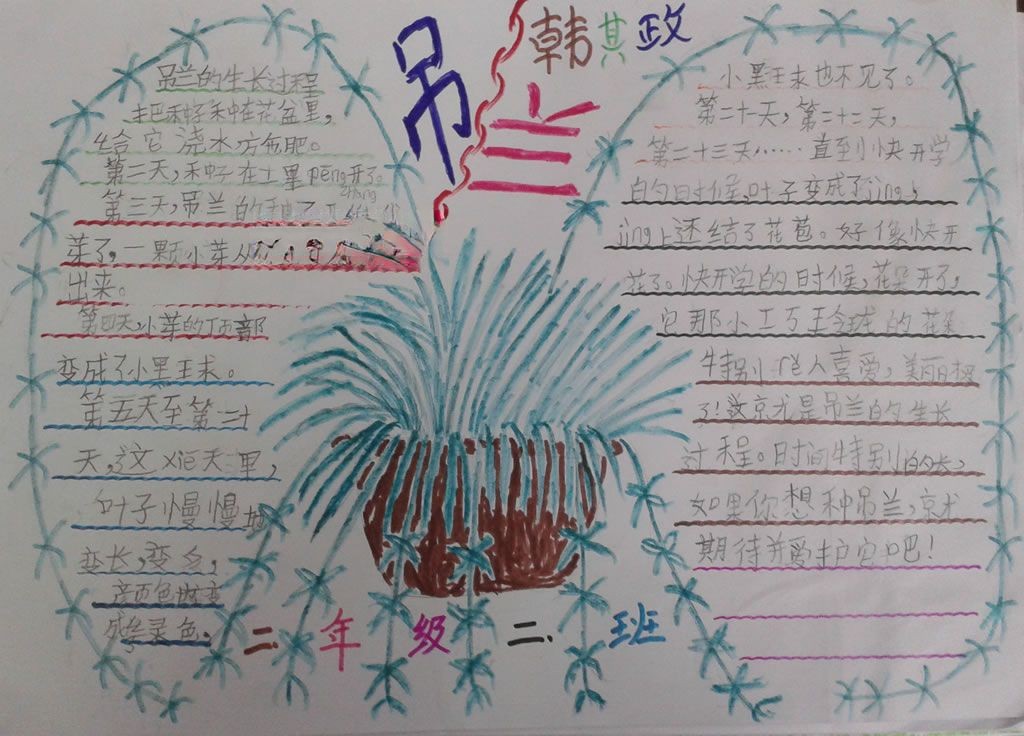 吊兰
韩其政
吊兰的生长过程
把种子种在花盆里,
给它浇水方包肥。
第二天,种子在土里peng开了。
zhǎng
第三天,吊兰的
芽了,一颗小芽从
出来。
第四天,小芽的顶部
变成了小黑王求。
第五天至第二十
天,这 天里,
叶子慢慢地
变长,变多,
颜色
成绿灵色。
小黑王求也不见了。
第二十一天,第二十二天,
第二十三天……直到快开学
的时候,叶子变成了jing,
jing上还结了花苞。好像快开
花了。快开学的时候,花朵开了,
它那小巧玲珑的花朵
特别 人喜爱,美丽极
了!这就是吊兰的生长
过程。时间特别的长,
如果你想种吊兰,就
期待并爱护它吧!
二年级二班